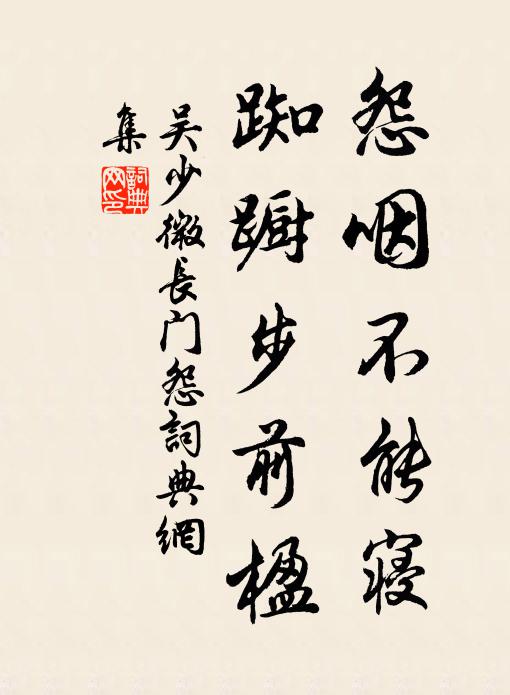 怨咽不能寝
踟蹰步前楹
吴少微长门怨词典網
集
詞典
网印